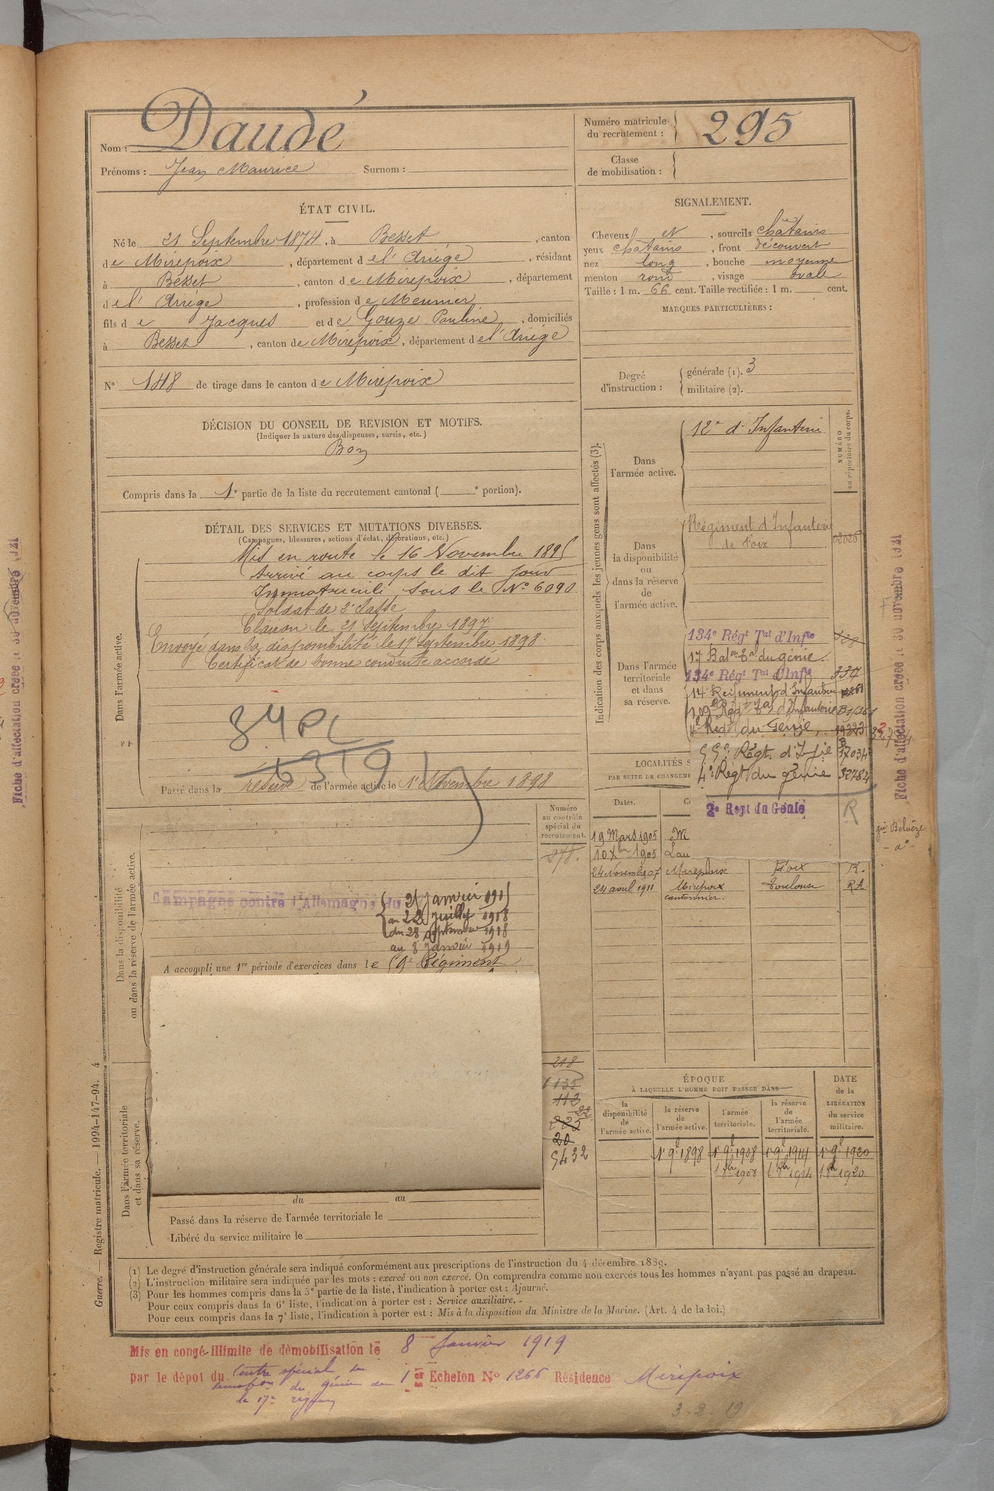 Nom : Daudé
Prénoms : Jean Maurice Surnom :
Numéro matricule du recrutement : 295
Classe de mobilisation :
ÉTAT CIVIL.
Né le 21 Septembre 1874, à Besset, canton
de Mirepoix, département de l'Ariège, résidant
à Besset, canton de Mirepoix, département
de l'Ariège, profession de Meunier
fils de Jacques et de Gouze Pauline, domiciliés
à Besset, canton de Mirepoix, département de l'Ariège
N° 148 de tirage dans le canton de Mirepoix
SIGNALEMENT.
Cheveux et, sourcils châtains
yeux châtains, front découvert
nez long, bouche moyenne
menton rond, visage ovale
Taille : 1 m. 66 cent. Taille rectifiée : 1 m. cent.
MARQUES PARTICULIÈRES :
Degré d'instruction : générale (1). 3
militaire (2).
DÉCISION DU CONSEIL DE REVISION ET MOTIFS.
(Indiquer la nature des dispenses, sursis, etc.)
Bon
Compris dans la 1e partie de la liste du recrutement cantonal ( e portion).
DÉTAIL DES SERVICES ET MUTATIONS DIVERSES.
(Campagnes, blessures, actions d'éclat, décorations, etc.)
Dans l'armée active.
Mis en route le 16 Novembre 1895
Arrivé au corps le dit jour
Immatriculé sous le N° 6090
Soldat de 2e classe
Clairon le 21 Septembre 1897
Envoyé dans la disponibilité le 17 Septembre 1898
Certificat de bonne conduite accordé
84 PL
6319
Passé dans la réserve de l'armée active le 1er Novembre 1898
Indication des corps auxquels les jeunes gens sont affectés (3).
NUMÉRO au répertoire du corps.
Dans l'armée active.
12e d'Infanterie
Dans la disponibilité ou dans la réserve de l'armée active.
Régiment d'Infanterie
de Foix
Dans l'armée territoriale et dans sa réserve.
134e Régt Tal d'Infie
17 Baton Tal du génie
134e Régt Tal d'Infie 337
14 Régiment d'Infanterie
Régt du Génie 19323
59e Régt. d'Infie
4e Régt du génie
2e Regt du Génie
R
LOCALITÉS S
PAR SUITE DE CHANGEM
Dates. C
19 Mars 1905 M
10 Xbre 1905 Lau
24 Novembre 07 Mirepoix Foix R.
24 avril 1911 Mirepoix Toulouse RA
cantonnier.
Dans la disponibilité ou dans la réserve de l'armée active.
Numéro au contrôle spécial du recrutement.
Campagne contre l'Allemagne du 31 Janvier 1915
au 22 Juillet 1918
du 28 septembre 1918
au 8 Janvier 1919
A accompli une 1re période d'exercices dans le 59e Régiment
Dans l'armée territoriale et dans sa réserve.
218
1135
113
20
5432
du au
Passé dans la réserve de l'armée territoriale le
Libéré du service militaire le
ÉPOQUE
À LAQUELLE L'HOMME DOIT PASSER DANS
la disponibilité de l'armée active.
la réserve de l'armée active.
l'armée territoriale.
la réserve de l'armée territoriale.
DATE de la LIBÉRATION du service militaire.
1er 9bre 1898 1er 9bre 1908 1er 9bre 1914 1er 9bre 1920
1er 8bre 1908 1er 8bre 1914 1er 8bre 1920
(1) Le degré d'instruction générale sera indiqué conformément aux prescriptions de l'instruction du 4 décembre 1889.
(2) L'instruction militaire sera indiquée par les mots : exercé ou non exercé. On comprendra comme non exercés tous les hommes n'ayant pas passé au drapeau.
(3) Pour les hommes compris dans la 5e partie de la liste, l'indication à porter est : Ajourné.
Pour ceux compris dans la 6e liste, l'indication à porter est : Service auxiliaire.
Pour ceux compris dans la 7e liste, l'indication à porter est : Mis à la disposition du Ministre de la Marine. (Art. 4 de la loi.)
Guerre. — Registre matricule. — 1994-147-94. 4
Mis en congé illimité de démobilisation le 8 Janvier 1919
par le dépôt du Centre spécial de
du génie de
la 17e région
1er Echelon N° 1266 Résidence Mirepoix
3-2-19
Fiche d'affectation créée le 30 novembre 1921
Fiche d'affectation créée le 30 novembre 1921